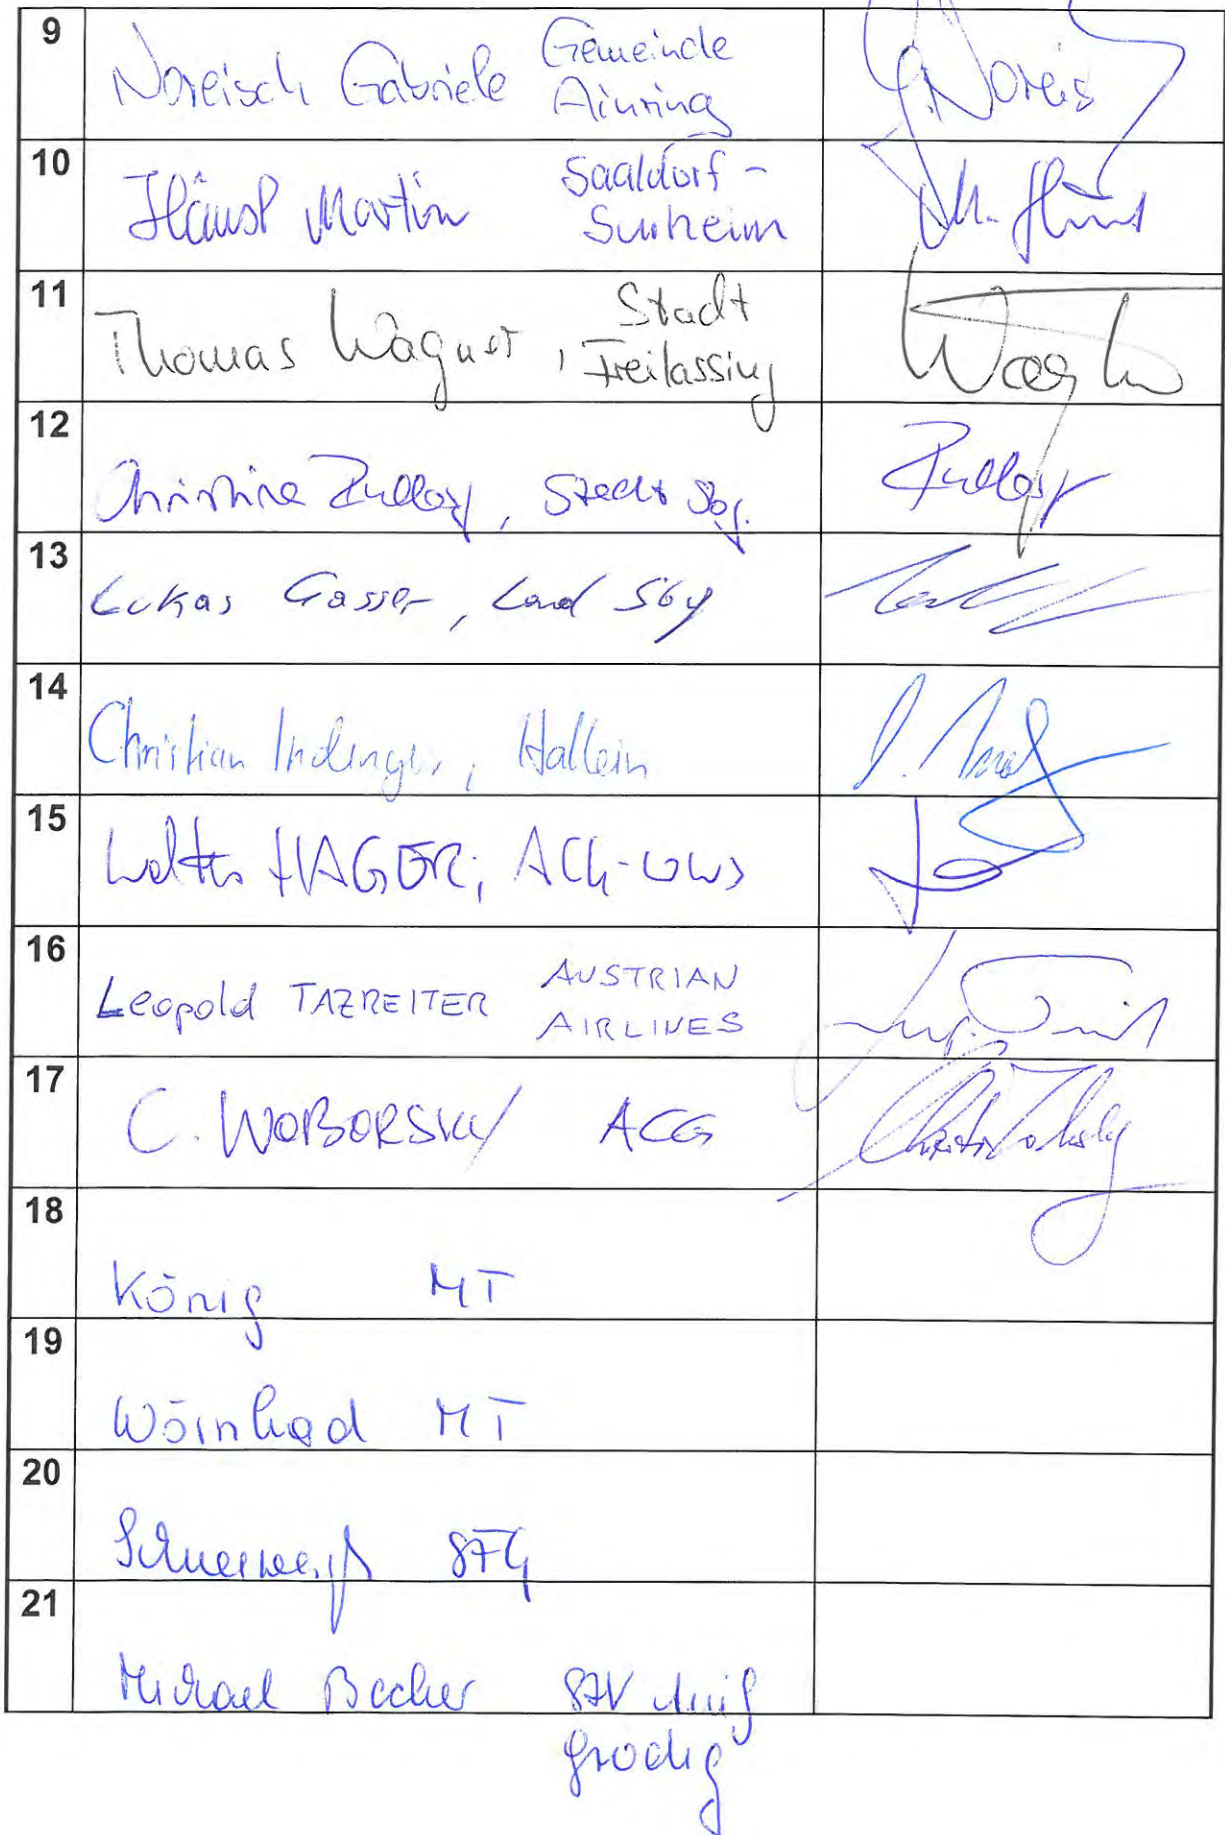 9
Noreisch Gabriele Gemeinde
Ainring
G. Noreis
10
Häusl Martin Saaldorf -
Surheim
11
Thomas Wagner, Stadt
Freilassing
12
Christine, Stadt Sbg.
13
Lukas Gasser, Land Sbg
14
Christian Indinger, Hallein
15
Walter HAGER; ACG-LOWS
16
Leopold TAZREITER AUSTRIAN
AIRLINES
17
C. WOBORSKY ACG
18
König MT
19
Wörnhad MT
20
Schneeweiß
21
Michael Becher Anif
Grödig